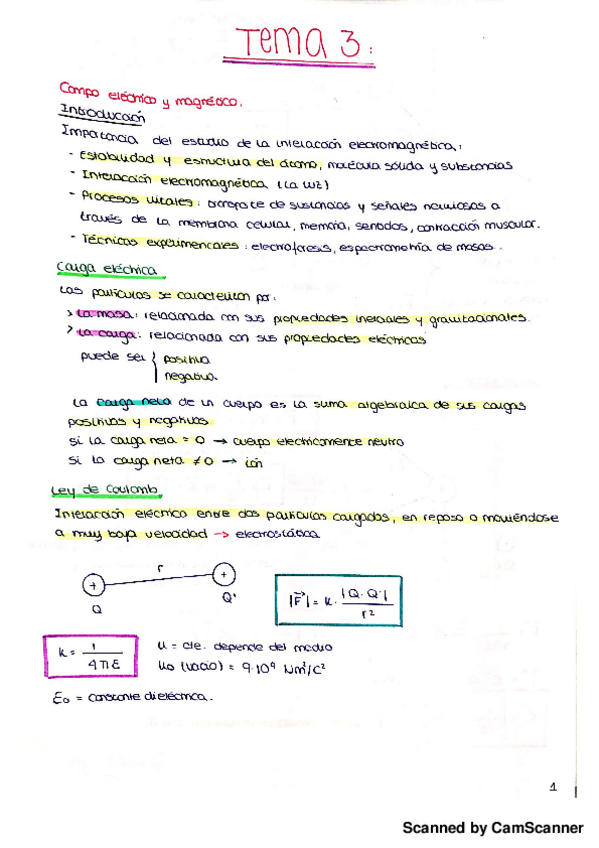 Tema 3:
Campo eléctrico y magnético.
Introducción
Importancia del estudio de la interacción electromagnética:
- Estabilidad y estructura del átomo, molécula sólida y substancias
- Interacción electromagnética (la luz)
- Procesos vitales: transporte de sustancias y señales nerviosas a
través de la membrana celular, memoria, sentidos, contracción muscular.
- Técnicas experimentales: electroforesis, espectrometría de masas.
Carga eléctrica
Las partículas se caracterizan por:
> La masa: relacionada con sus propiedades inerciales y gravitacionales.
> La carga: relacionada con sus propiedades eléctricas
puede ser { positiva
negativa.
La carga neta de un cuerpo es la suma algebraica de sus cargas
positivas y negativas
si la carga neta = 0 → cuerpo electricamente neutro
si la carga neta ≠ 0 → ión
Ley de Coulomb
Interacción eléctrica entre dos partículas cargadas, en reposo o moviéndose
a muy baja velocidad → electrostática
r
+ +
Q Q'
|F⃗| = k · |Q · Q'| / r²
k = 1 / 4πε
K = cte. depende del medio
K0 (vacío) = 9·10⁹ Nm²/C²
ε0 = constante dieléctrica.
1
Scanned by CamScanner